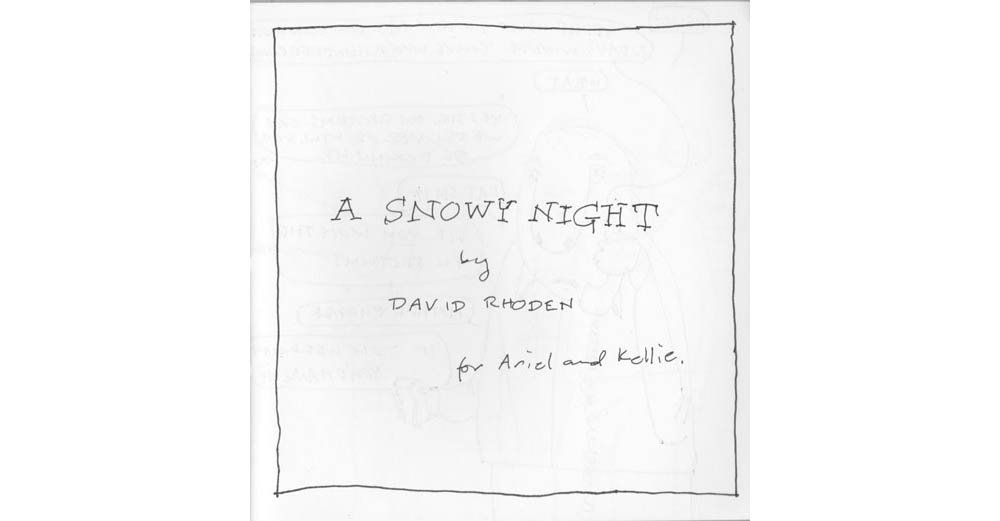 A SNOWY NIGHT
by
DAVID RHODEN
for Ariel and Kellie.